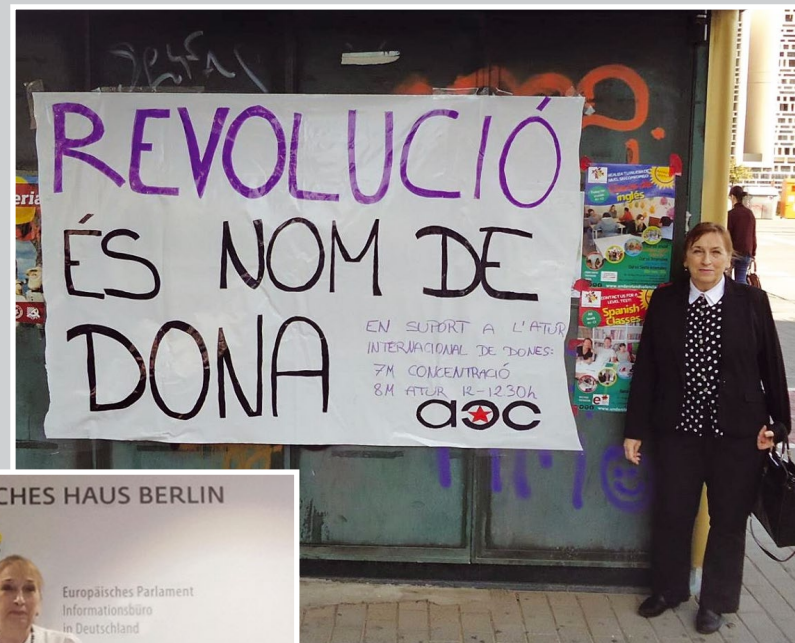 REVOLUCIÓ
ÉS NOM DE
DONA
EN SUPORT A L'ATUR
INTERNACIONAL DE DONES:
7M CONCENTRACIÓ
8M ATUR 12-1230h
aec
inglés
CONTACT US FOR A
LEVEL TEST!
Spanish
Classes
CHES HAUS BERLIN
Europäisches Parlament
Informationsbüro
in Deutschland